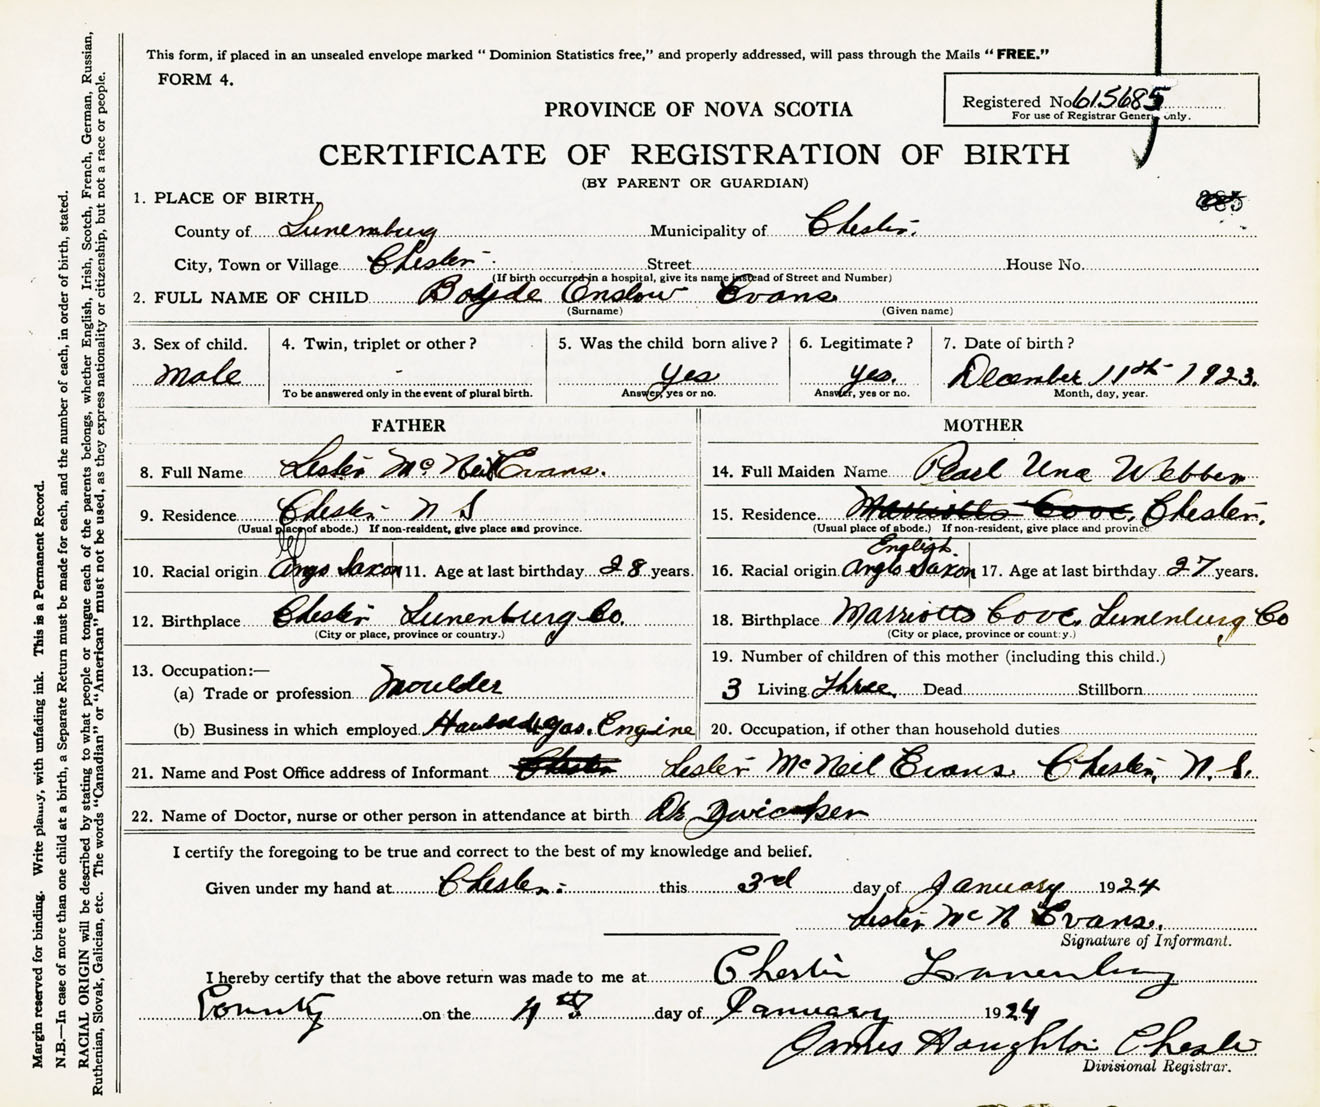 This form, if placed in an unsealed envelope marked “ Dominion Statistics free,” and properly addressed, will pass through the Mails “ FREE.”
FORM 4.
Registered No 615685
For use of Registrar General only.
PROVINCE OF NOVA SCOTIA
CERTIFICATE OF REGISTRATION OF BIRTH
(BY PARENT OR GUARDIAN)
1. PLACE OF BIRTH,
County of Lunenburg Municipality of Chester.
City, Town or Village Chester Street House No.
(If birth occurred in a hospital, give its name instead of Street and Number)
2. FULL NAME OF CHILD Boyde Enslow Evans
(Surname) (Given name)
3. Sex of child. 4. Twin, triplet or other ? 5. Was the child born alive ? 6. Legitimate ? 7. Date of birth ?
Male - Yes yes. December 11th 1923.
To be answered only in the event of plural birth. Answer, yes or no. Answer, yes or no. Month, day, year.
FATHER MOTHER
8. Full Name Lester Mc Neil Evans. 14. Full Maiden Name Pearl Una Webber
9. Residence Chester N S 15. Residence Marriotts Cove, Chester.
(Usual place of abode.) If non-resident, give place and province. (Usual place of abode.) If non-resident, give place and province
English.
10. Racial origin Saxon 11. Age at last birthday 28 years. 16. Racial origin Anglo Saxon 17. Age at last birthday 27 years.
12. Birthplace Chester Lunenburg Co. 18. Birthplace Marriotts Cove, Lunenburg Co
(City or place, province or country.) (City or place, province or country.)
13. Occupation:— 19. Number of children of this mother (including this child.)
(a) Trade or profession Moulder 3 Living Three. Dead Stillborn
(b) Business in which employed gas. Engine 20. Occupation, if other than household duties
21. Name and Post Office address of Informant Chester Lester McNeil Evans Chester, N. S.
22. Name of Doctor, nurse or other person in attendance at birth Dr Zwicker
I certify the foregoing to be true and correct to the best of my knowledge and belief.
Given under my hand at Chester. this 3rd day of January 1924
Lester Mc N Evans.
Signature of Informant.
I hereby certify that the above return was made to me at Chester Lunenburg
County on the 4th day of January 1924
James Haughton Chester
Divisional Registrar.
Margin reserved for binding. Write plainly, with unfading ink. This is a Permanent Record.
N.B.—In case of more than one child at a birth, a Separate Return must be made for each, and the number of each, in order of birth, stated.
RACIAL ORIGIN will be described by stating to what people or tongue each of the parents belongs, whether English, Irish, Scotch, French, German, Russian,
Ruthenian, Slovak, Galician, etc. The words “Canadian” or “American” must not be used, as they express nationality or citizenship, but not a race or people.